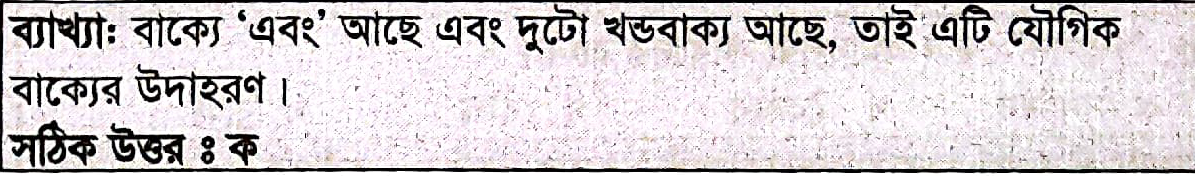 ব্যাখ্যা: বাক্যে ‘এবং’ আছে এবং দুটো খন্ডবাক্য আছে, তাই এটি যৌগিক
বাক্যের উদাহরণ।
সঠিক উত্তর ঃ ক